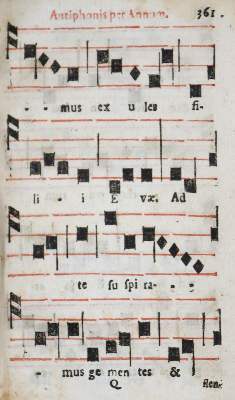 Antiphonis per Annum. 361.
- - mus ex u les fi-
li - i E væ. Ad
te su spi ra - - -
- mus ge men tes &
Q flen-